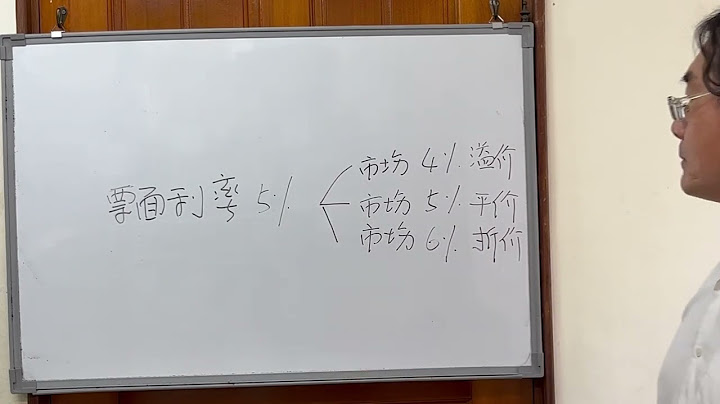 票面利率 5%
市场 4% 溢价
市场 5% 平价
市场 6% 折价